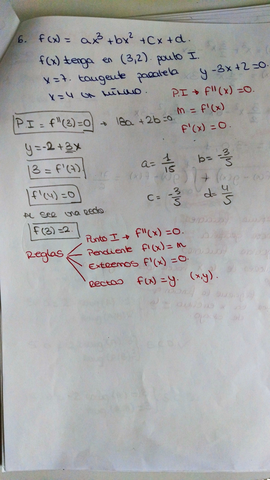 6. f(x) = ax³ + bx² + Cx + d.
f(x) tenga en (3,2) punto I.
x=7. tangente paralela y-3x+2=0.
x=4 un mínimo.
P I → f''(x)=0.
m = f'(x)
f'(x)=0.
P I = f''(3)=0 → 18a+2b=0
y=-2+3x
3 = f'(7)
f'(4)=0
f(3)=2
a = 1/15 b = -3/5
c = -3/5 d = 4/5
Reglas
Punto I → f''(x)=0.
Pendiente f'(x)=m
Extremos f'(x)=0
Rectas f(x)=y. (x,y).